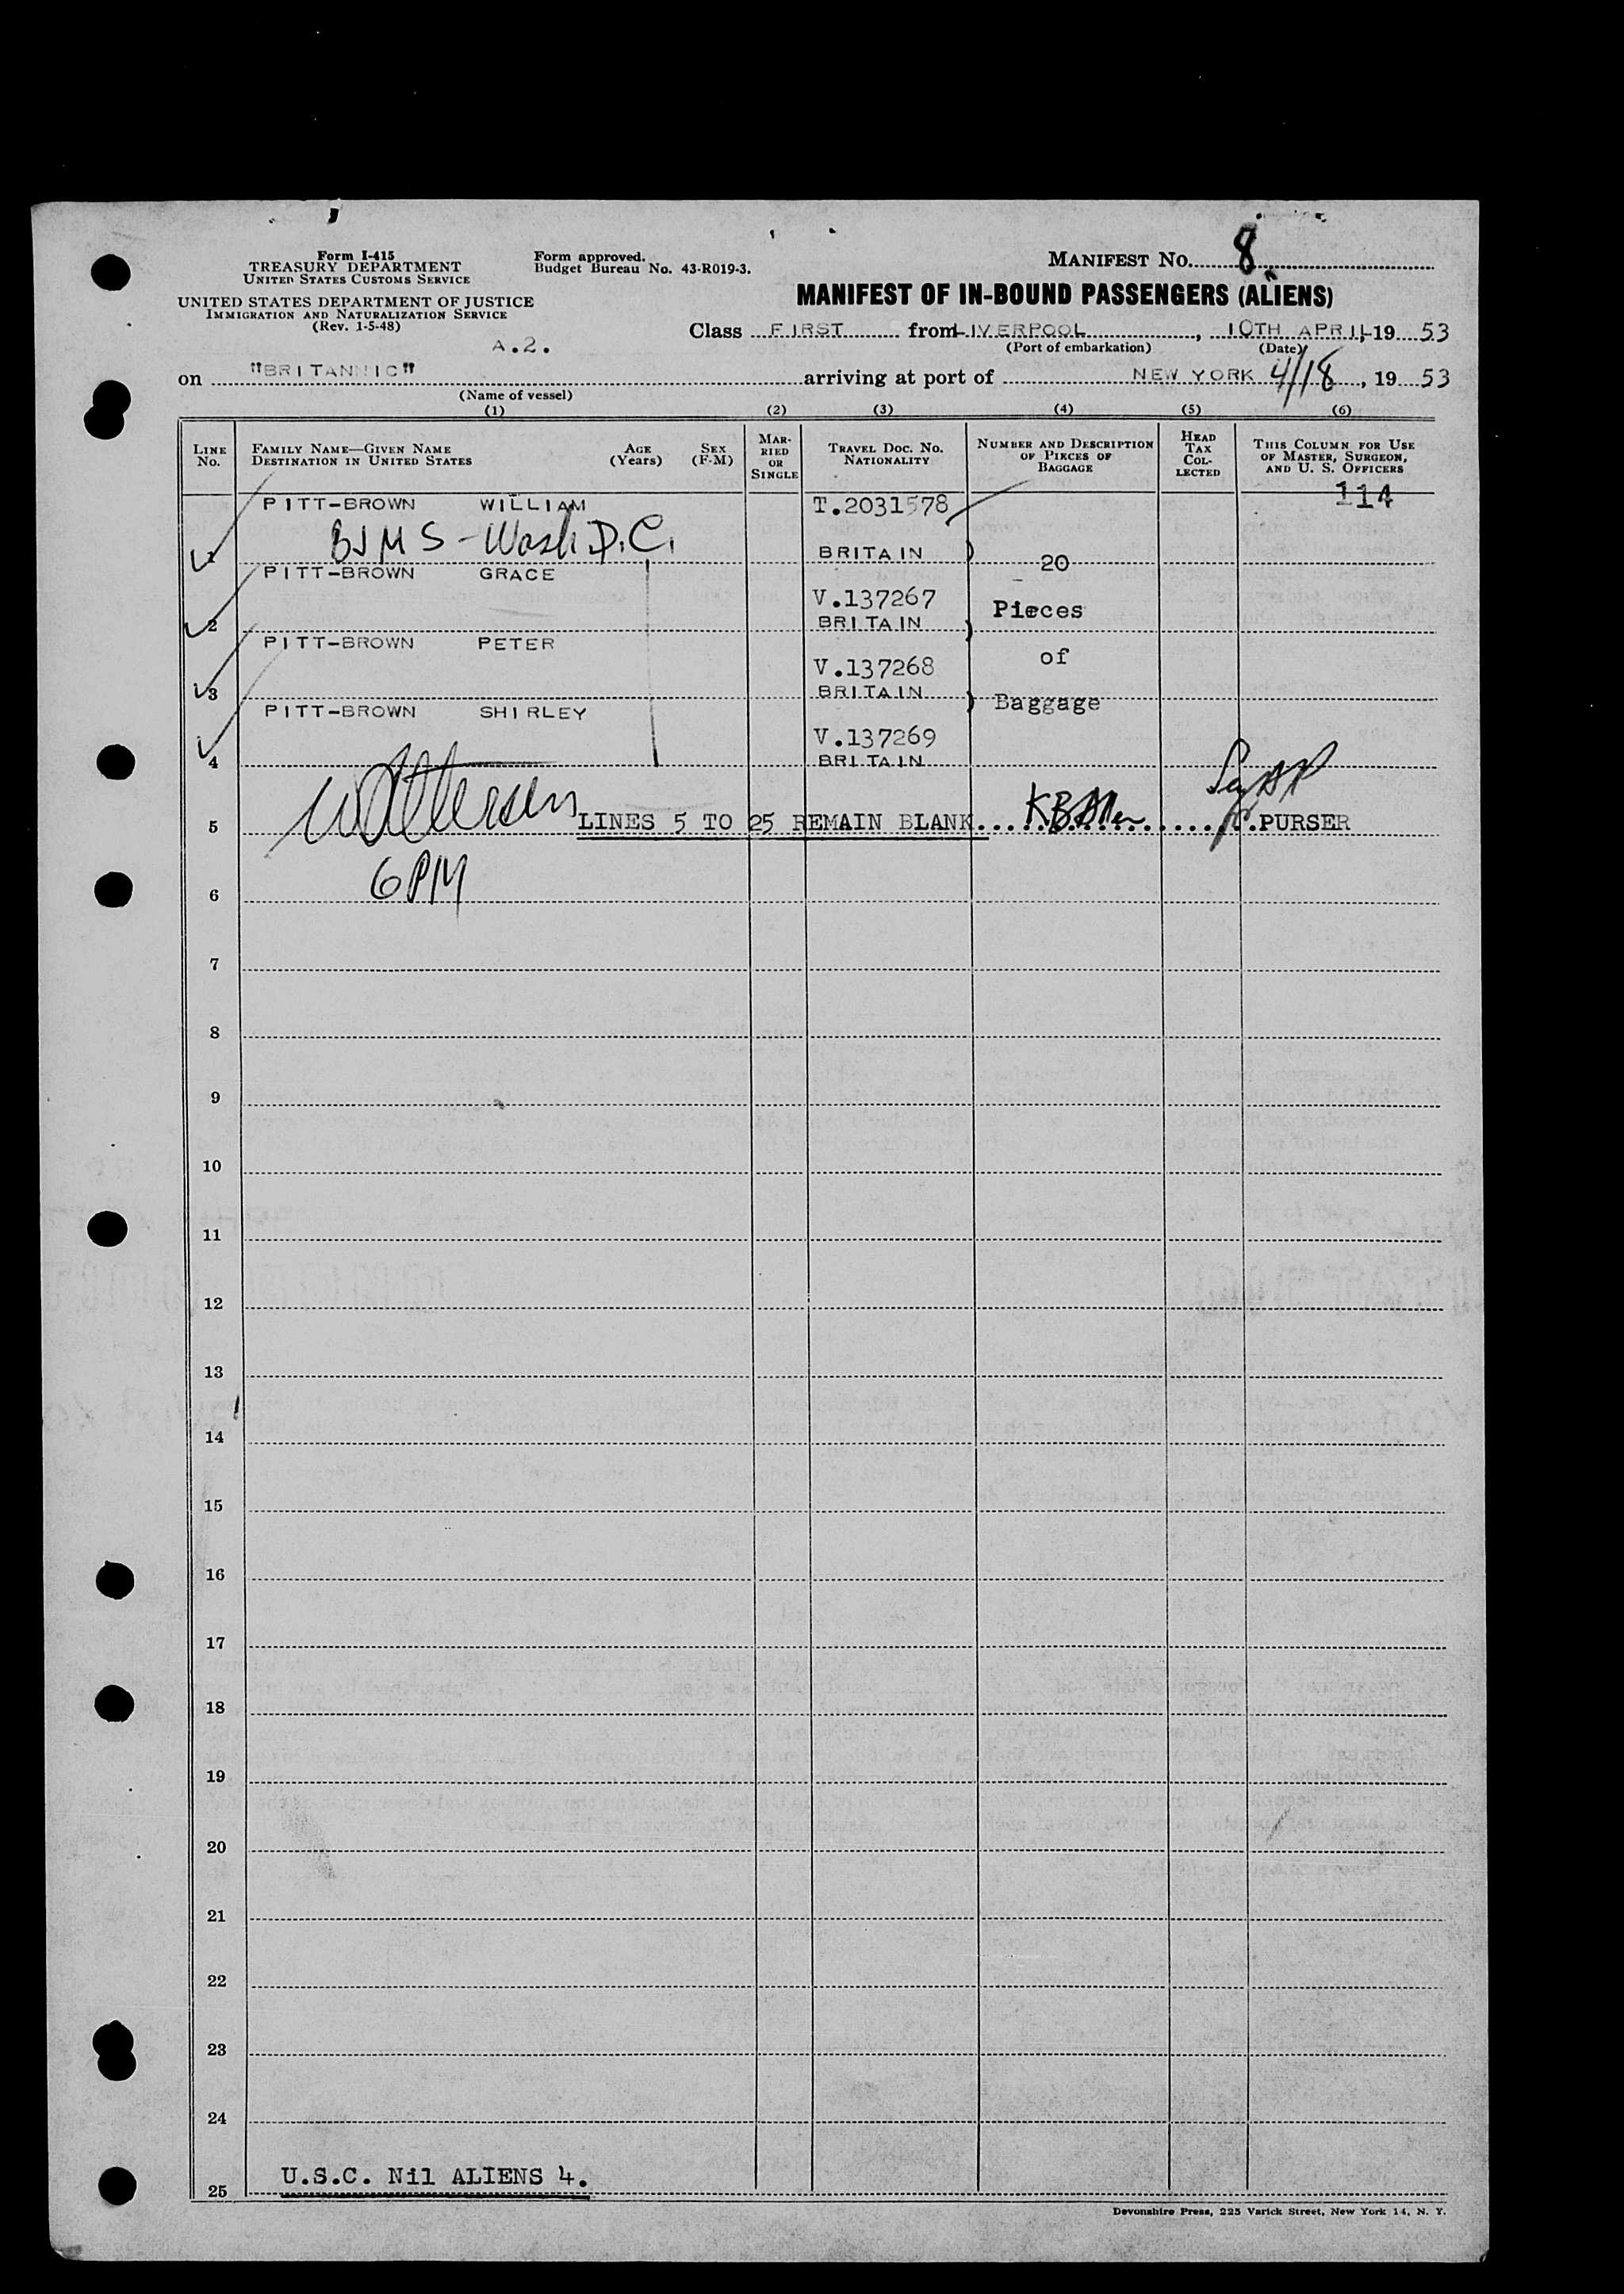 Form I-415
TREASURY DEPARTMENT
UNITED STATES CUSTOMS SERVICE
UNITED STATES DEPARTMENT OF JUSTICE
IMMIGRATION AND NATURALIZATION SERVICE
(Rev. 1-5-48)
Form approved.
Budget Bureau No. 43-R019-3.
MANIFEST NO. 8
MANIFEST OF IN-BOUND PASSENGERS (ALIENS)
A.2.
Class FIRST from LIVERPOOL, 10TH APRIL, 19 53
(Port of embarkation) (Date)
on "BRITANNIC" arriving at port of NEW YORK 4/18, 19 53
(Name of vessel)
(1) (2) (3) (4) (5) (6)
LINE NO. FAMILY NAME—GIVEN NAME DESTINATION IN UNITED STATES AGE (Years) SEX (F-M) MARRIED OR SINGLE TRAVEL DOC. NO. NATIONALITY NUMBER AND DESCRIPTION OF PIECES OF BAGGAGE HEAD TAX COLLECTED THIS COLUMN FOR USE OF MASTER, SURGEON, AND U. S. OFFICERS
114
PITT-BROWN WILLIAM T.2031578
BJMS - Wash D.C.
1 BRITAIN ) 20
PITT-BROWN GRACE
V.137267 Pieces
2 BRITAIN )
PITT-BROWN PETER
V.137268 of
3 BRITAIN ) Baggage
PITT-BROWN SHIRLEY
V.137269
4 BRITAIN
5 LINES 5 TO 25 REMAIN BLANK. PURSER
6 PM
6
7
8
9
10
11
12
13
14
15
16
17
18
19
20
21
22
23
24
U.S.C. Nil ALIENS 4.
25
Devonshire Press, 225 Varick Street, New York 14, N. Y.